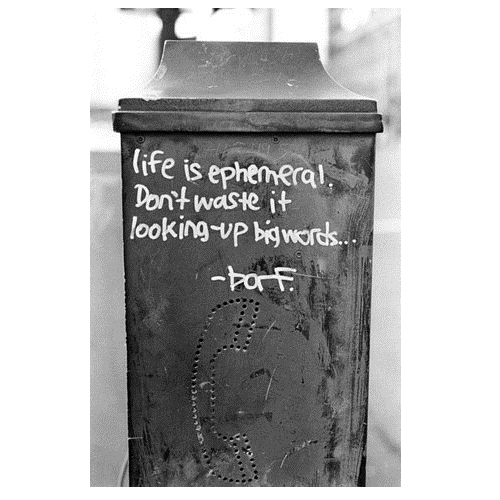 life is ephemeral.
Don't waste it
looking-up big words...
-barf.